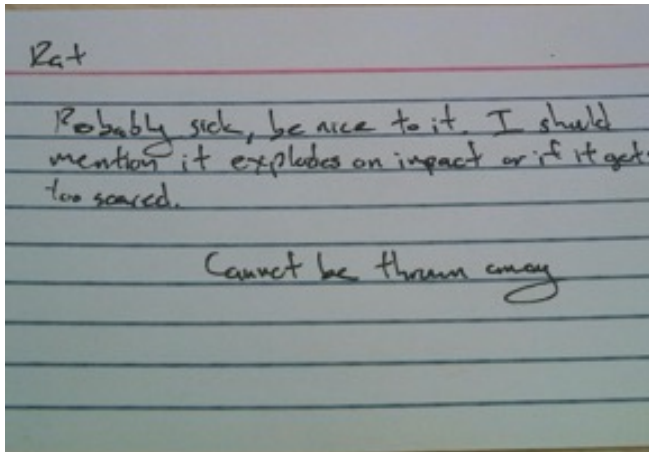 Rat
Probably sick, be nice to it. I should
mention it explodes on impact or if it gets
too scared.
Cannot be thrown away